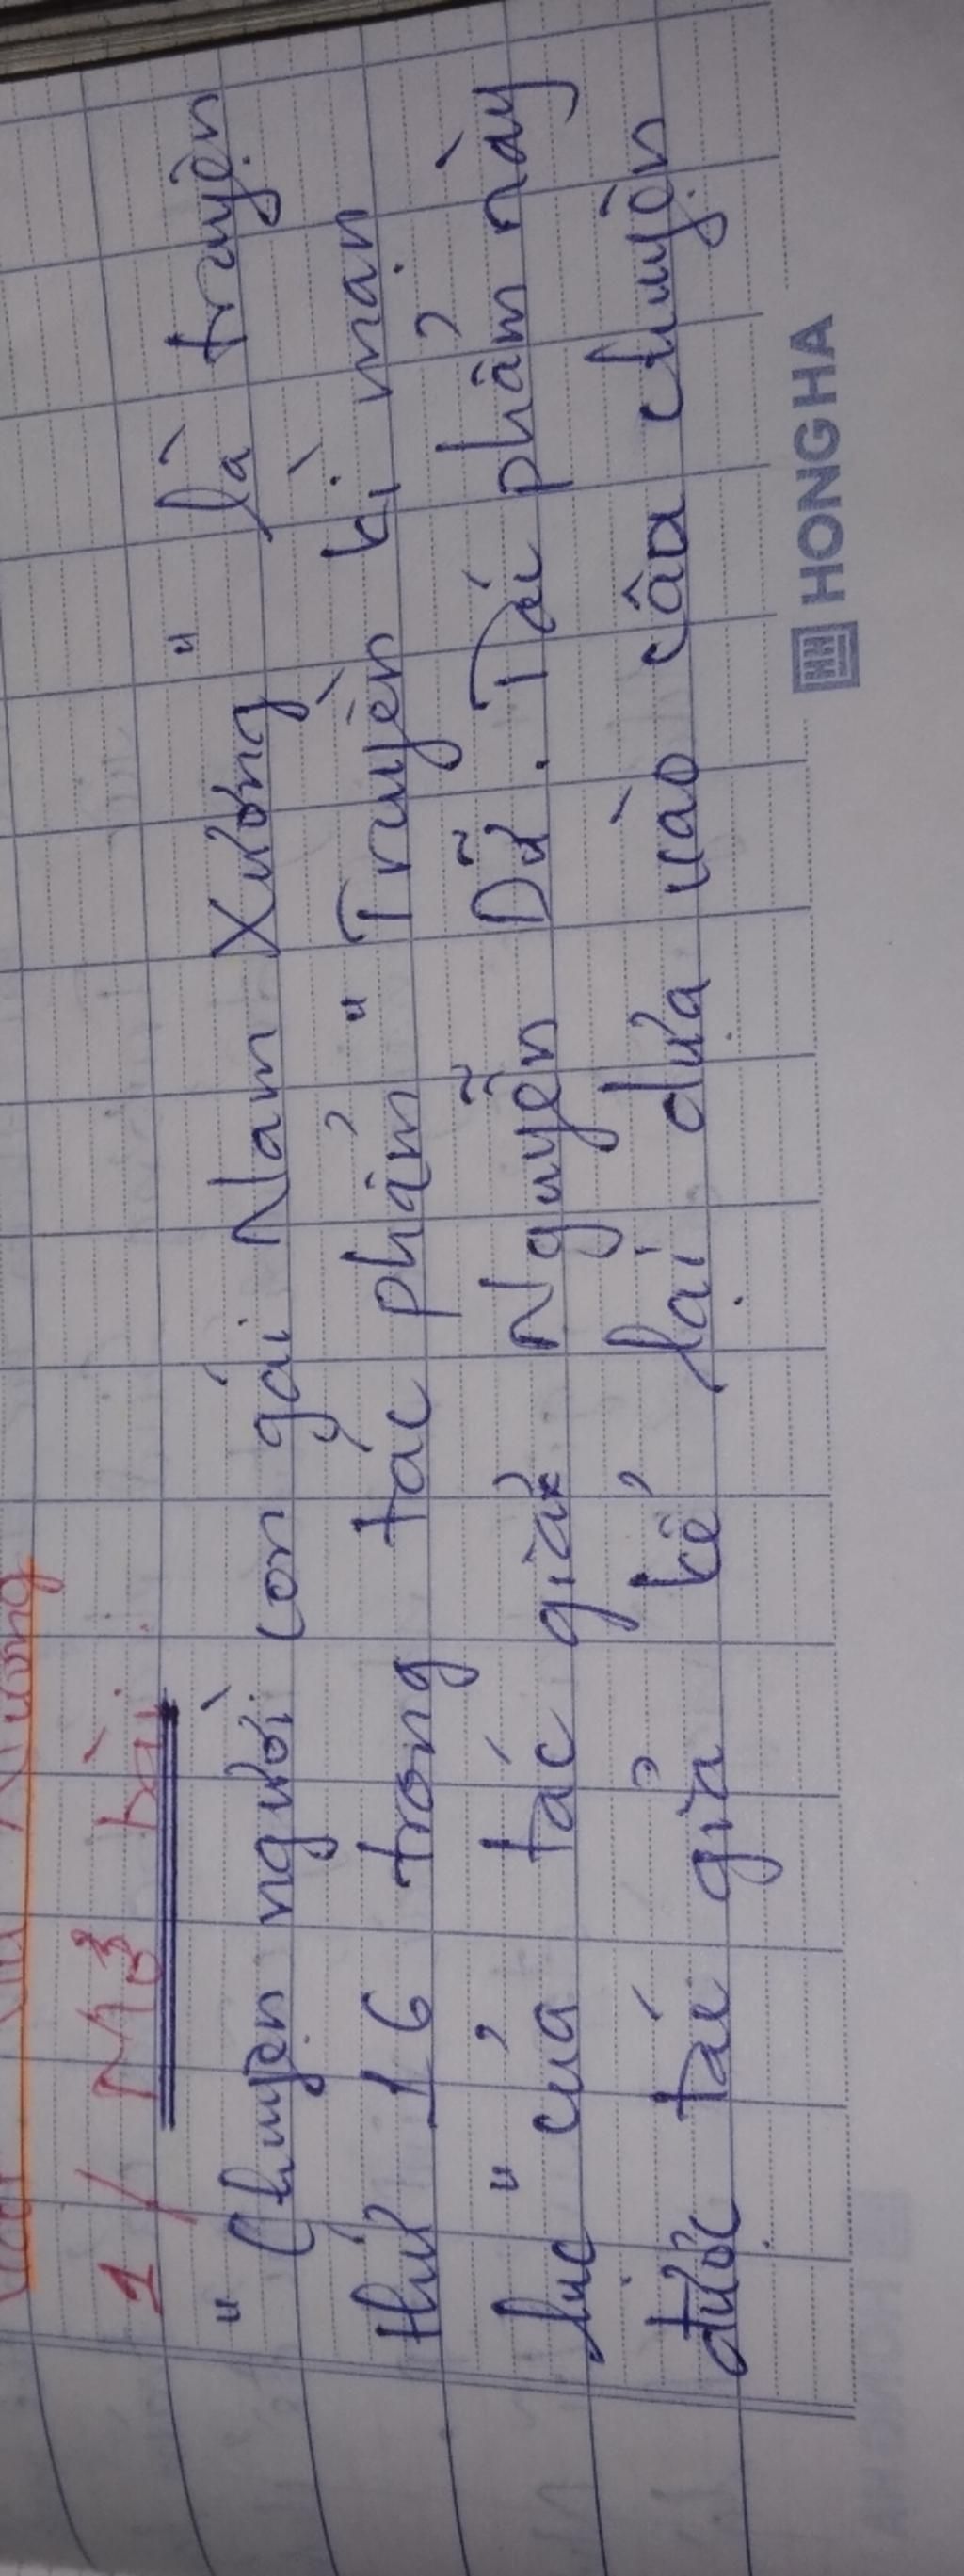 1/ Mở bài
" Chuyện người con gái Nam Xương " là truyện
thứ 16 trong tác phẩm " Truyền kì mạn
lục " của tác giả Nguyễn Dữ. Tác phẩm này
được tác giả kể lại dựa vào câu chuyện
HONG HA